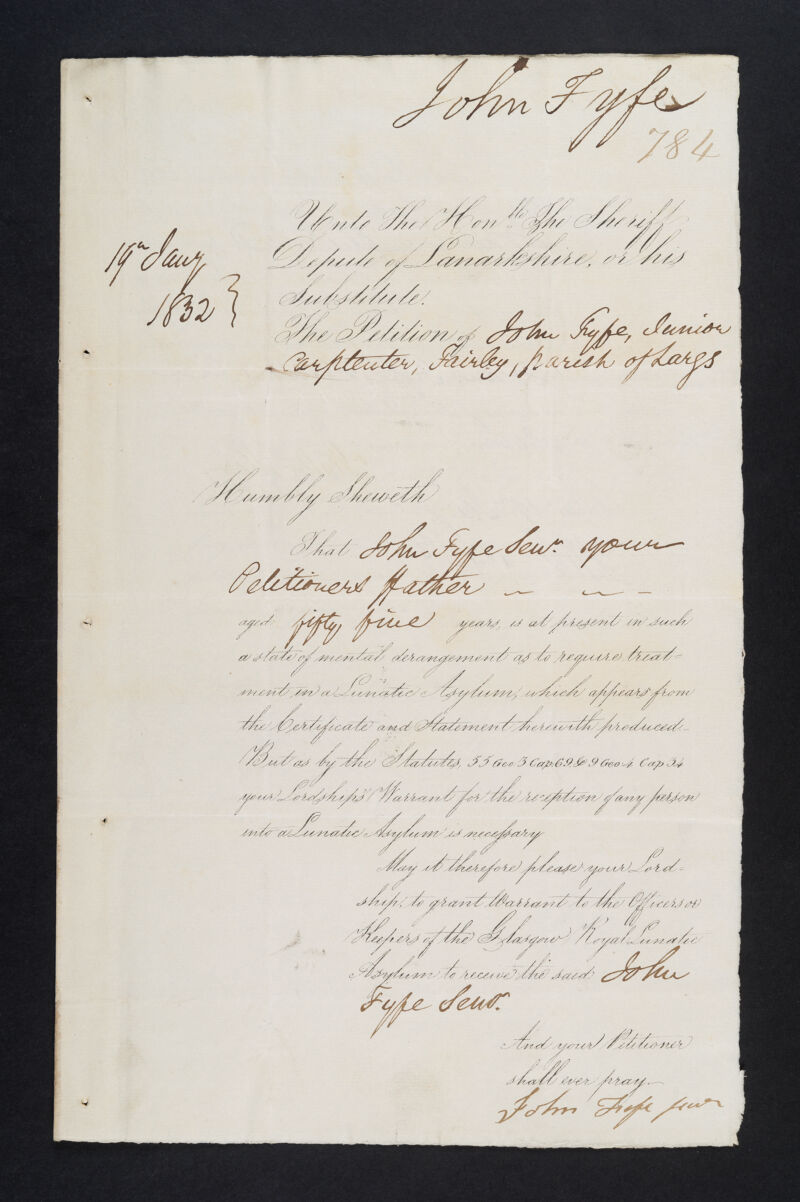 John Fyfe
784
Unto The Honble The Sheriff
19th Jany
Depute of Lanarkshire, or his
1832
Substitute.
The Petition of John Fyfe, Junior
Carptenter, Fairley, parish of Largs
Humbly Sheweth
That John Fyfe Senr. your
Petitioners ffather
aged fifty five years, is at present in such
a state of mental derangement as to require treat-
ment in a Lunatic Asylum; which appears from
the Certificate and Statement herewith produced_
But as by the Statutes, 55 Geo 3 Cap. 69 & 9 Geo 4 Cap 34
your Lordship's Warrant for the reception of any person
into a Lunatic Asylum is necessary
May it therefore please your Lord-
ship; to grant Warrant to the Officers or
Keepers of the Glasgow Royal Lunatic
Asylum to receive the said John
Fyfe Senr.
And your Petitioner
shall ever pray_
John Fyfe